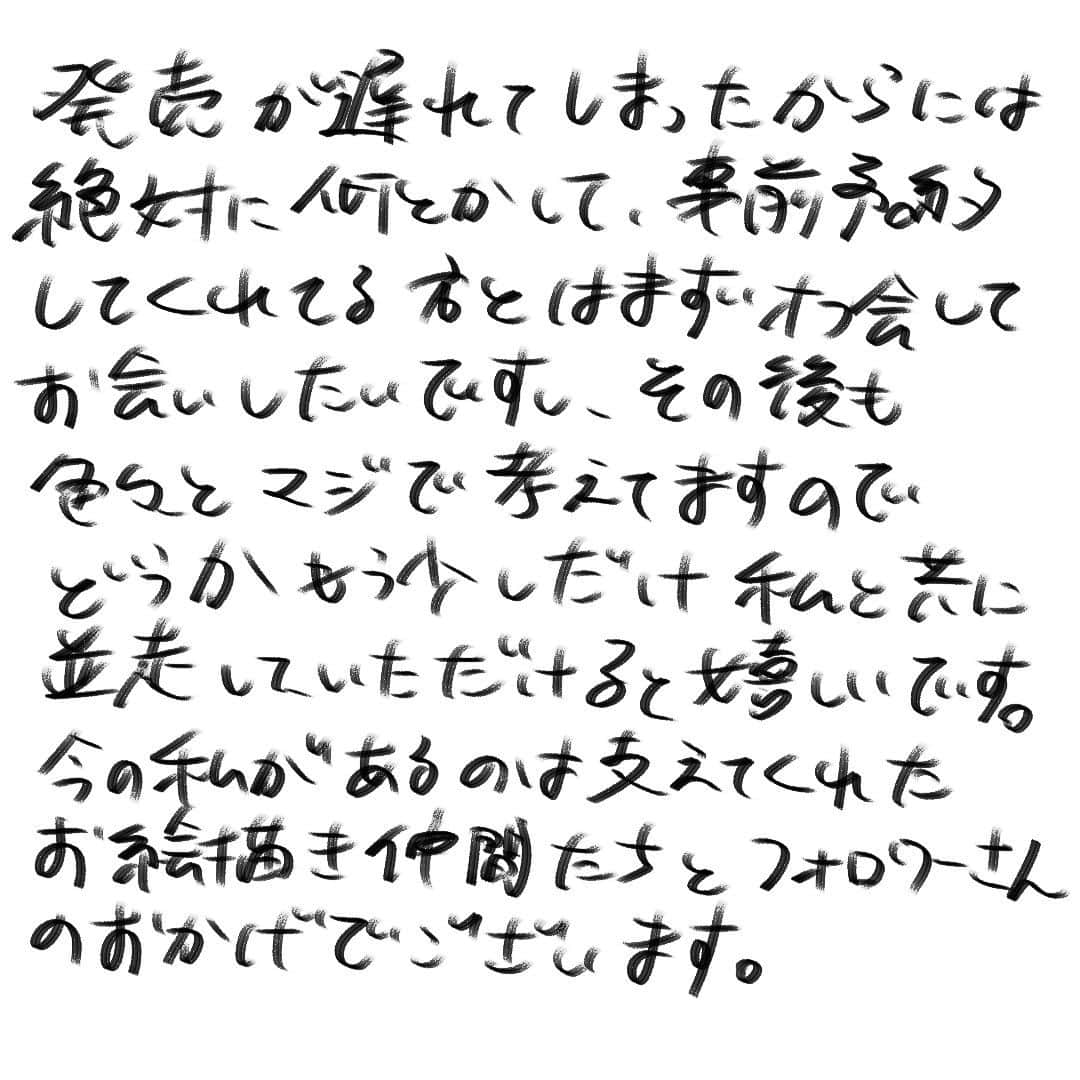 発売が遅れてしまったからには
絶対に何とかして、事前予約
してくれてる方とはまずオフ会して
お会いしたいですし、その後も
色々とマジで考えてますので
どうかもう少しだけ私と共に
並走していただけると嬉しいです。
今の私があるのは支えてくれた
お絵描き仲間たちとフォロワーさん
のおかげでございます。